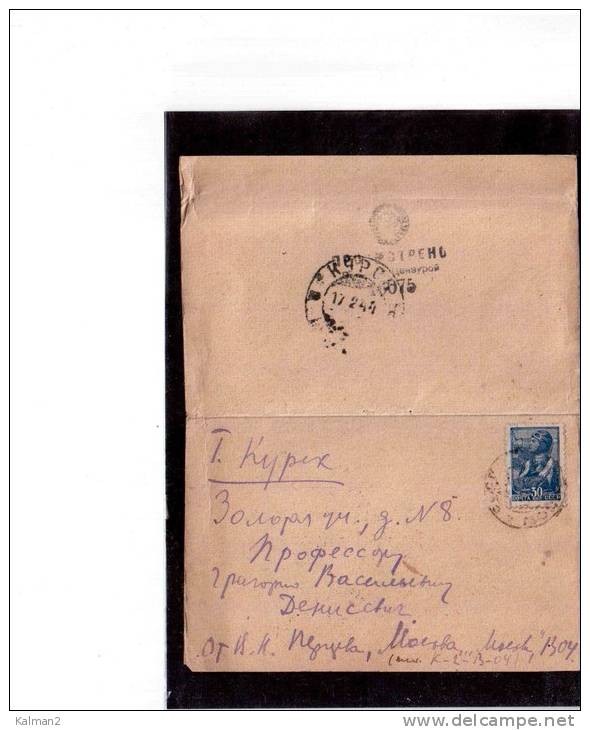 ПРОСМОТРЕНО
Цензурой
075
КУРСК
17 2 44
30
ПОЧТА СССР
Г. Курск
Золотая ул., д. N 8.
Профессору
Григорию Васильевичу
Денисевич
От В. Н. Москва,
K-2-B-04)
Kalman2
www.delcampe.net